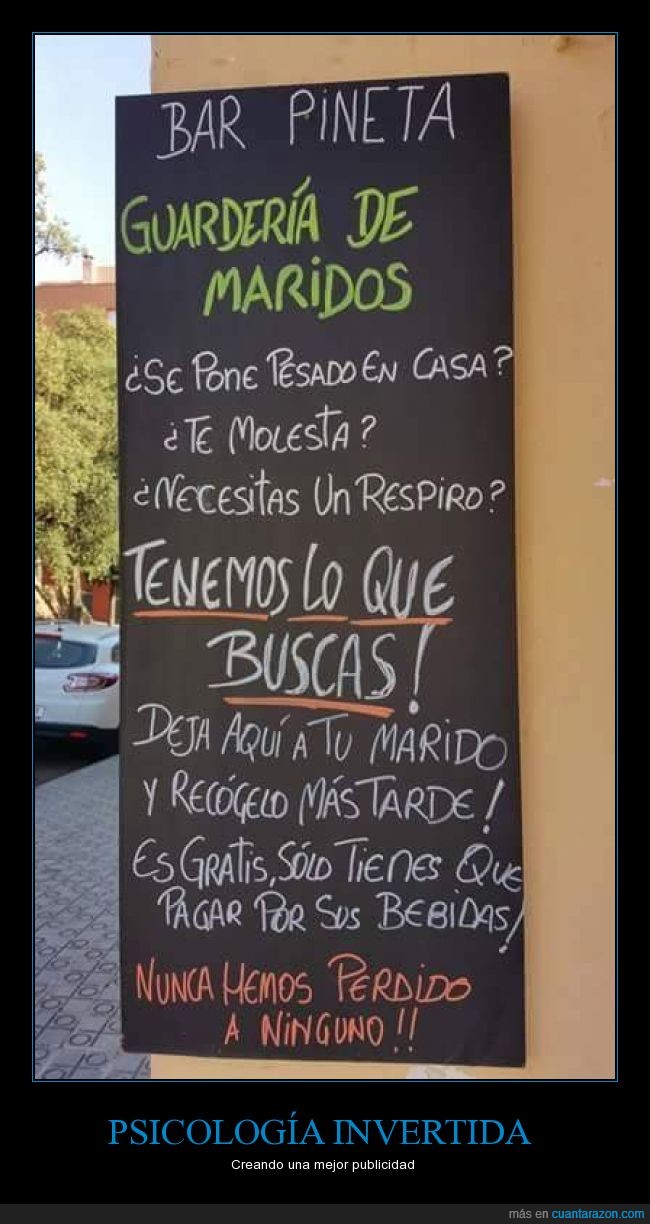 BAR PINETA
GUARDERÍA DE
MARIDOS
¿SE PONE PESADO EN CASA?
¿TE MOLESTA?
¿NECESITAS UN RESPIRO?
TENEMOS LO QUE
BUSCAS!
DEJA AQUÍ A TU MARIDO
Y RECÓGELO MÁS TARDE!
ES GRATIS, SÓLO TIENES QUE
PAGAR POR SUS BEBIDAS!
NUNCA HEMOS PERDIDO
A NINGUNO!!
PSICOLOGÍA INVERTIDA
Creando una mejor publicidad
más en cuantarazon.com